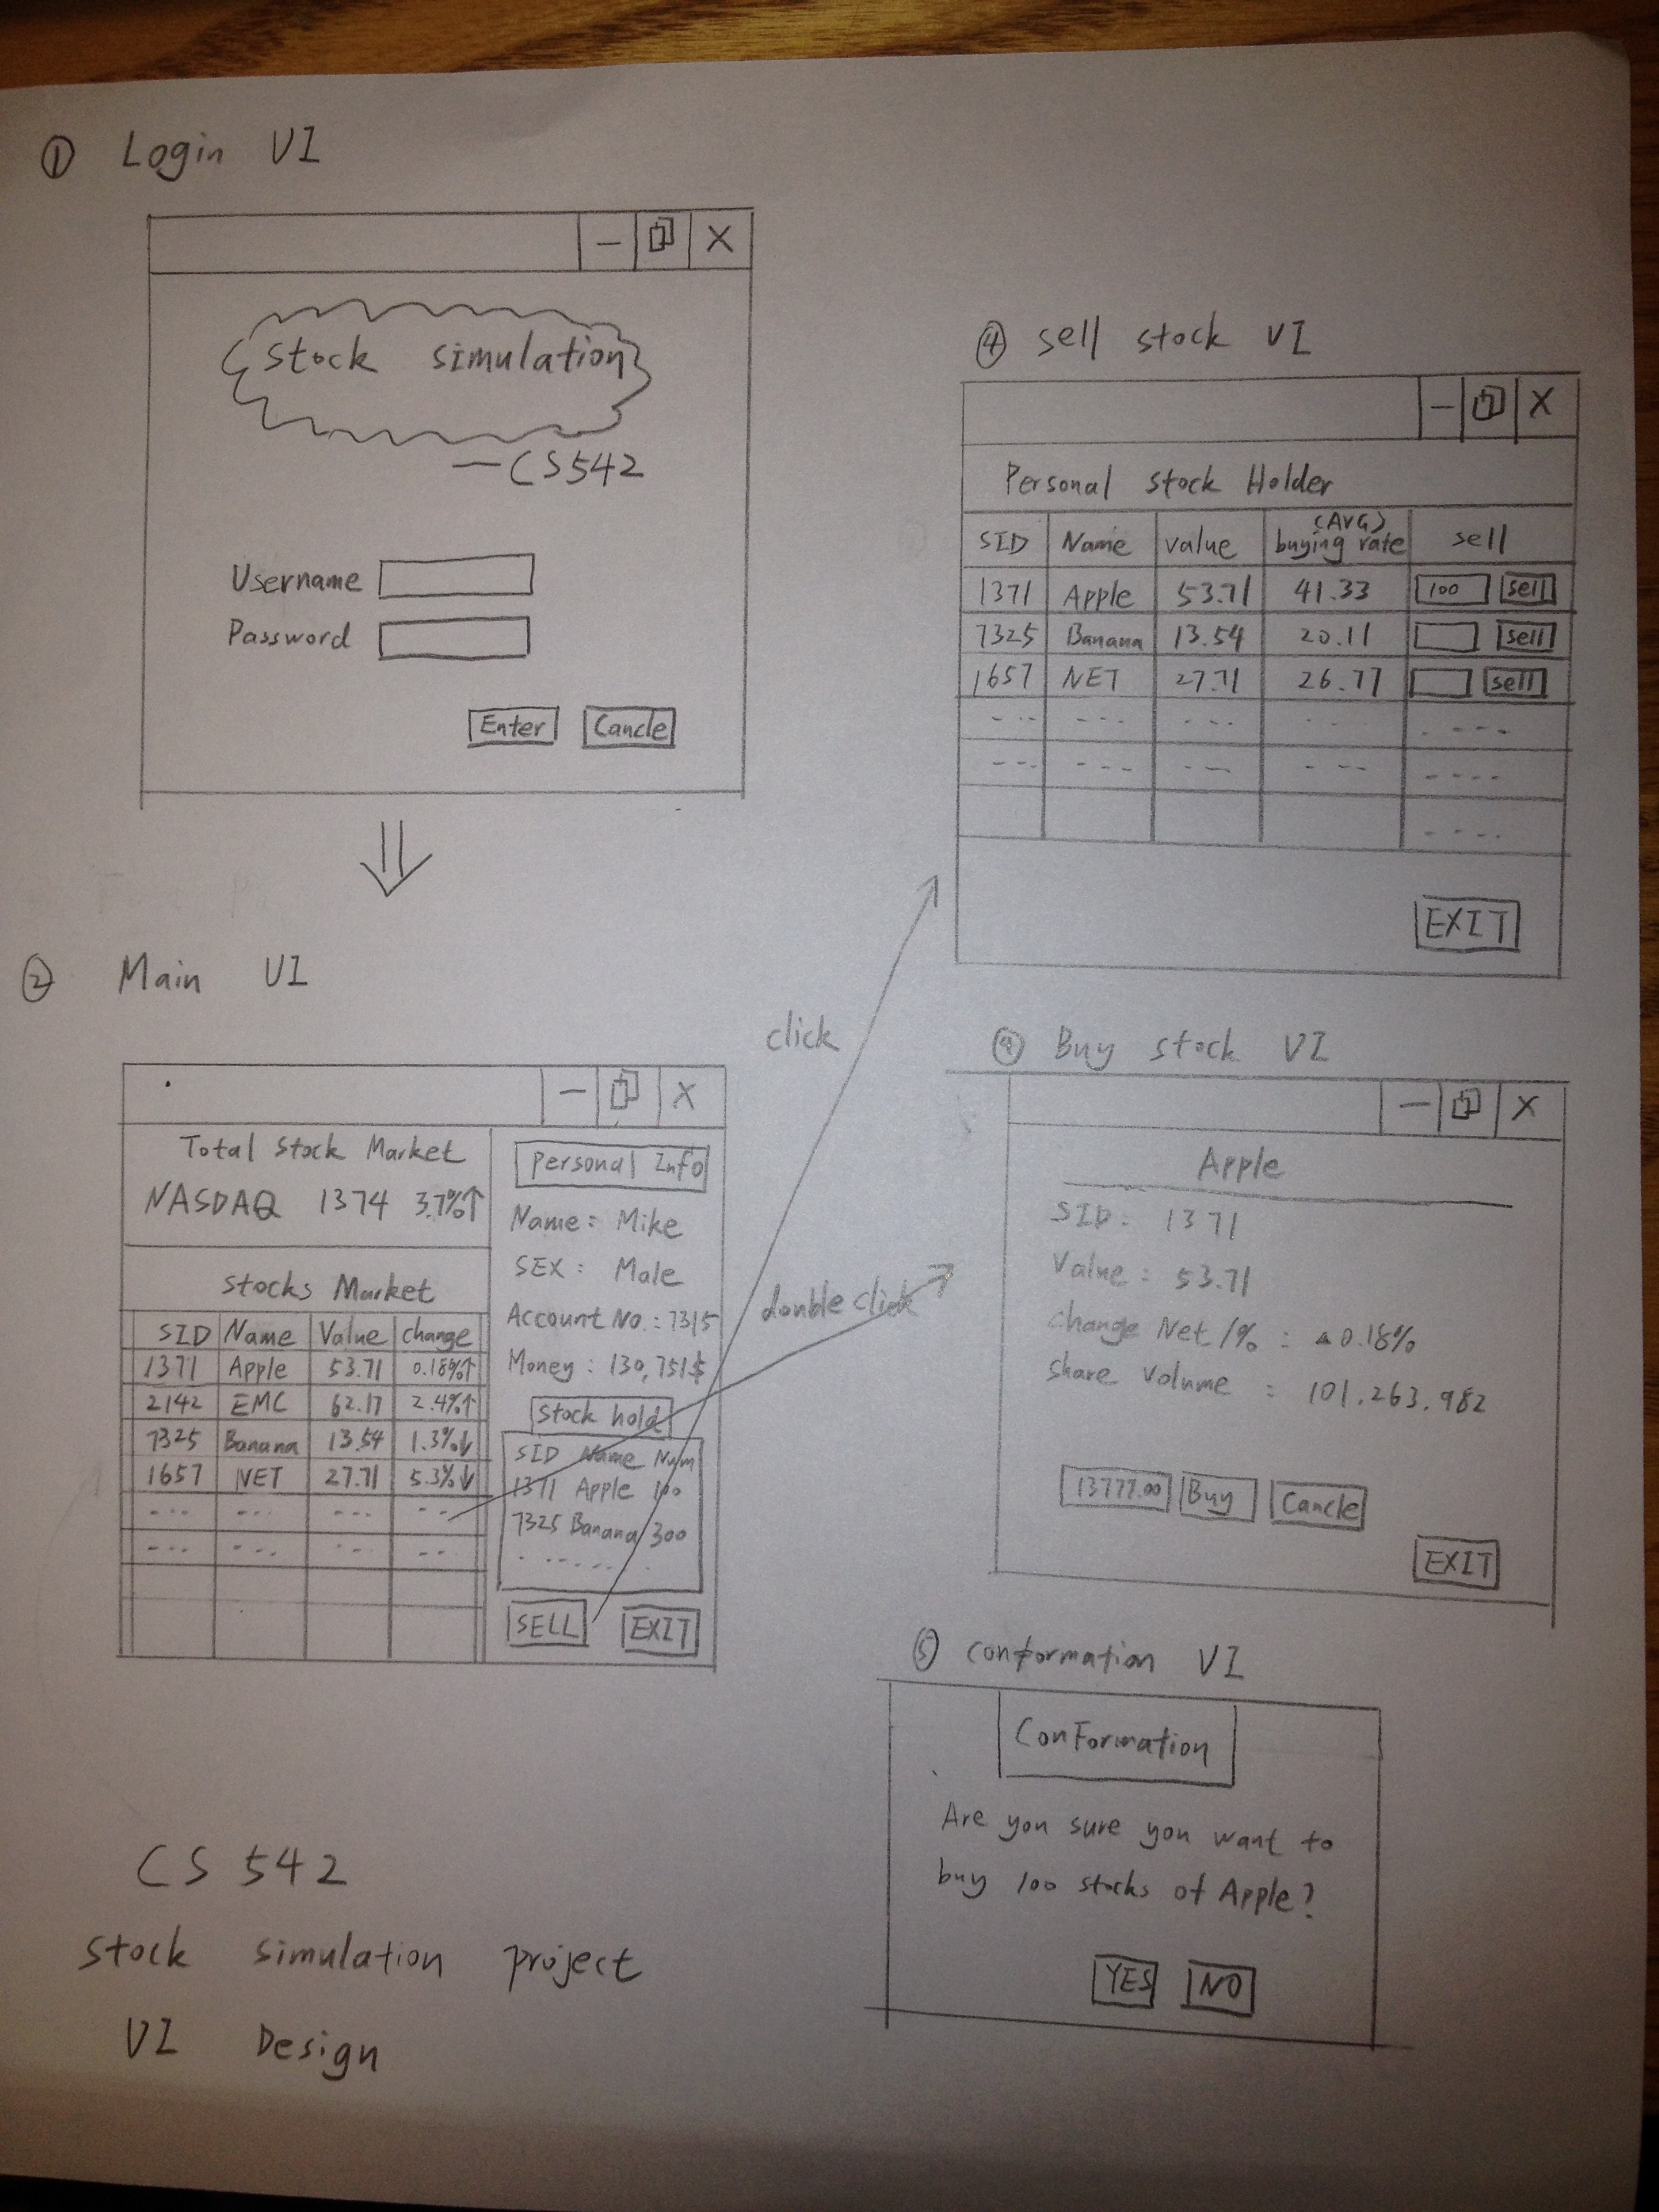 ① Login UI
— X
Stock simulation
— CS542
Username
Password
Enter Cancle
② Main UI
— X
Total Stock Market
NASDAQ 1374 3.7%↑
Stocks Market
SID Name Value change
1371 Apple 53.71 0.18%↑
2142 EMC 62.17 2.4%↑
7325 Banana 13.54 1.3%↓
1657 NET 27.71 5.3%↓
Personal Info
Name: Mike
SEX: Male
Account No.: 7315
Money: 130,751$
Stock hold
SID Name Num
1371 Apple 100
7325 Banana 300
SELL EXIT
click
double click
④ sell stock UI
— X
Personal Stock Holder
SID Name value (AVG) buying rate sell
1371 Apple 53.71 41.33 100 sell
7325 Banana 13.54 20.11 sell
1657 NET 27.71 26.77 sell
EXIT
Buy stock UI
— X
Apple
SID: 1371
Value: 53.71
change Net/%: ▲0.18%
share Volume: 101.263.982
13777.00 Buy Cancle
EXIT
⑤ conformation UI
ConFormation
Are you sure you want to
buy 100 stocks of Apple?
YES NO
CS 542
Stock simulation project
UI Design